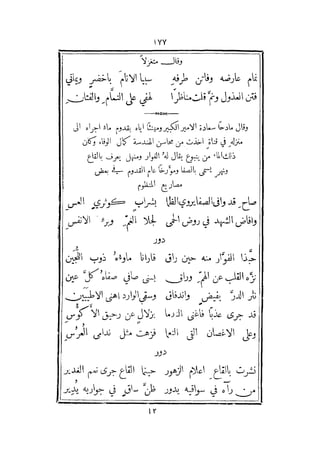 ١٧٧
وقال متغزلاً
نمام عارضه وفاتن طرفه سبيا الانام باخضر ويماني
فتن العذول ونمّ قلت مناظرا لهفي على النمّام والفتان
وقال مادحًا سعادة الامير الكبير ومهنئًا اياه بقدوم ماء اجراه الى
منزله في قناةٍ اخذت من محاسن الهندسة كمال الوفاء وكان
ذلك الماء من ينبوع يقال له الفوار ومنهل يعرف بالقاع
ونهر يسمى بالصفا ومؤرخًا عام القدوم في بعض
مصاريع المنظوم
صاحِ قد وافى الصفا يروي الظما بشرابٍ كوثريّ العس
وافاض الشهد في روض الحمى فجلا الغمّ وبرء الانفس
دور
حبّذا الفوّار منه حين راق فارانا ماؤهُ ذوب اللجين
نزّه القلب عن الهمّ وراق لسنى صافي صفاه كلّ عين
نثر الدرّ بفيض واندفاق وسقى الوارد اهنى الاطيبين
قد جرى عذبًا فاغنى الندما بزلالٍ عن رحيق الأكؤسِ
وعلى الاغصان القى النعما فزهت مثل ندامى العُرُس
دور
نشرت بالقاع اعلام الزهور حيثما القاع جرى نعم الغدير
من رآه في سواقيه يدور ظنّ ساقٍ في جواريه يُدير